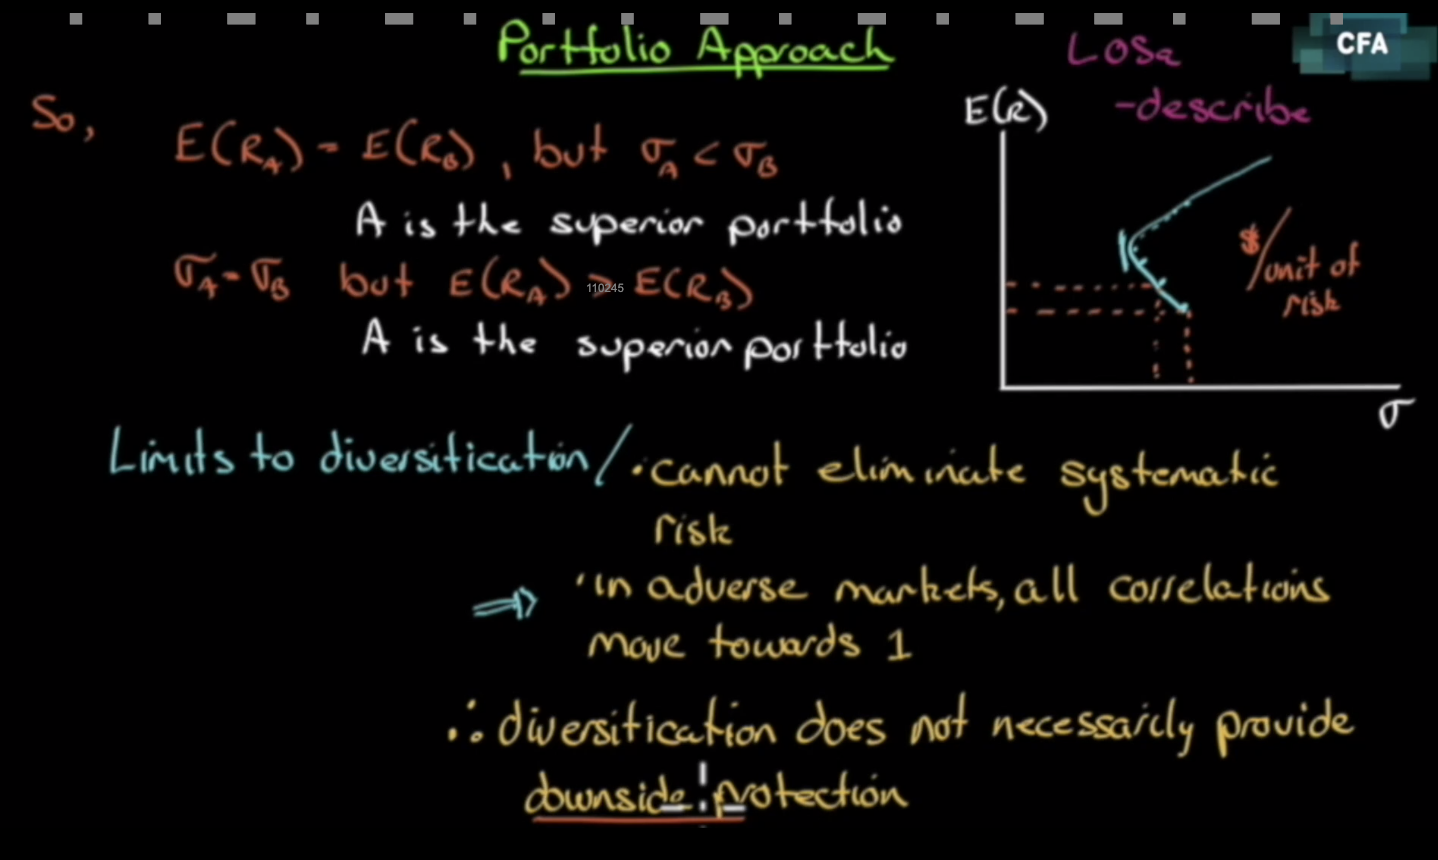 Portfolio Approach
LOSa
- describe
CFA
So,
E(R_A) = E(R_B), but σ_A < σ_B
A is the superior portfolio
σ_A = σ_B but E(R_A) > E(R_B)
110245
A is the superior portfolio
E(R)
$/unit of
risk
σ
Limits to diversification/ · cannot eliminate systematic
risk
⇒ · in adverse markets, all correlations
move towards 1
∴ diversification does not necessarily provide
downside protection